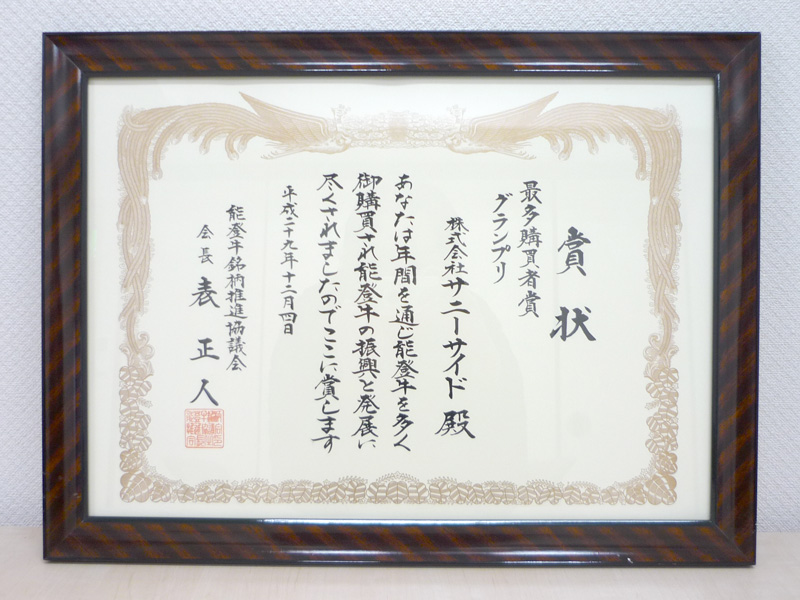 賞状
最多購買者賞
グランプリ
株式会社サニーサイド 殿
あなたは年間を通じ能登牛を多く
御購買され能登牛の振興と発展に
尽くされましたのでここに賞します
平成二十九年十二月四日
能登牛銘柄推進協議会
会長 表正人